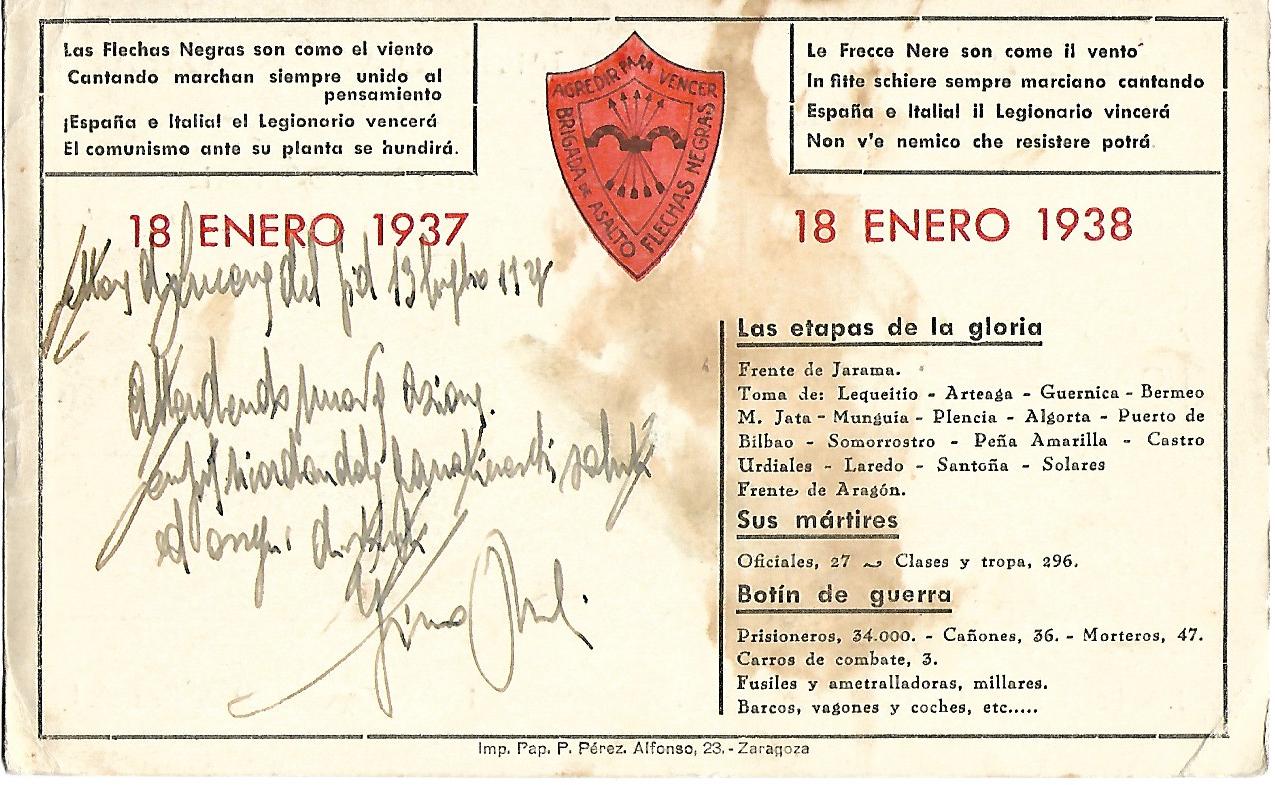 Las Flechas Negras son como el viento
Cantando marchan siempre unido al
pensamiento
¡España e Italia! el Legionario vencerá
El comunismo ante su planta se hundirá.
AGREDIR PARA VENCER
BRIGADA DE ASALTO FLECHAS NEGRAS
Le Frecce Nere son come il vento
In fitte schiere sempre marciano cantando
España e Italia! il Legionario vincerá
Non v'e nemico che resistere potrá
18 ENERO 1937
18 ENERO 1938
del 13 luglio
Attendendo
saluti
ed
Las etapas de la gloria
Frente de Jarama.
Toma de: Lequeitio - Arteaga - Guernica - Bermeo
M. Jata - Munguia - Plencia - Algorta - Puerto de
Bilbao - Somorrostro - Peña Amarilla - Castro
Urdiales - Laredo - Santoña - Solares
Frente de Aragón.
Sus mártires
Oficiales, 27 ~ Clases y tropa, 296.
Botín de guerra
Prisioneros, 34.000. - Cañones, 36. - Morteros, 47.
Carros de combate, 3.
Fusiles y ametralladoras, millares.
Barcos, vagones y coches, etc.....
Imp. Pap. P. Pérez. Alfonso, 23. - Zaragoza